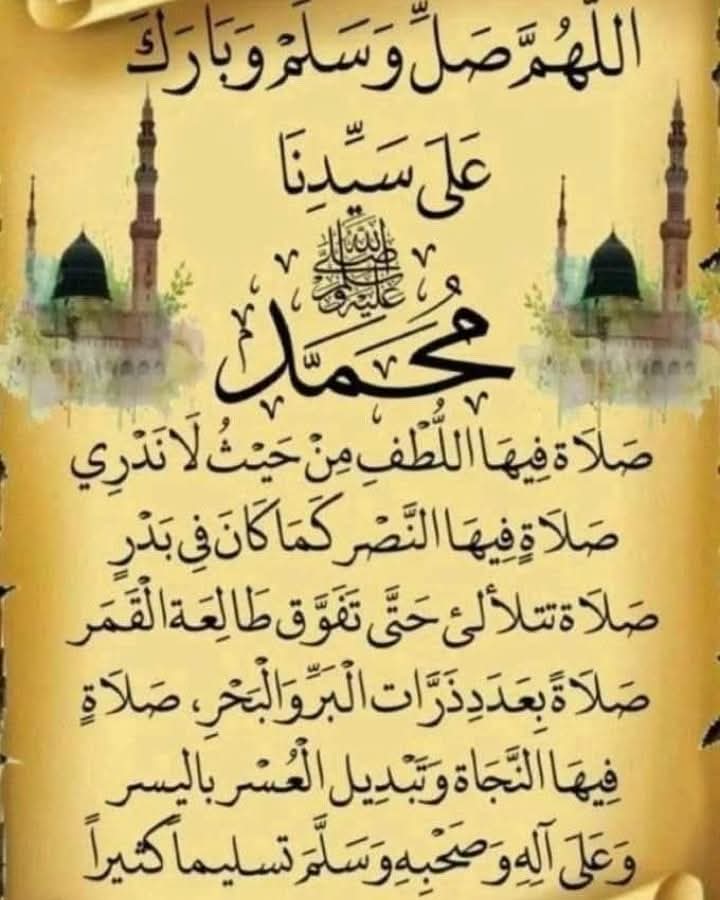 اللَّهُمَّ صَلِّ وَسَلِّمْ وَبَارِكْ
عَلَى سَيِّدِنَا
صلى الله عليه وسلم
مُحَمَّد
صَلَاة فِيهَا اللُّطْفِ مِنْ حَيْثُ لَا نَدْرِي
صَلَاةٍ فِيهَا النَّصْر كَمَا كَانَ فِي بَدْرٍ
صَلَاة تتلألئ حَتَّى تَفَوَّق طَالِعَة الْقَمَر
صَلَاةً بِعَدَدِ ذَرَّات الْبَرِّ وَالْبَحْرِ، صَلَاةٍ
فِيهَا النَّجَاة وَتَبْدِيل الْعُسْر باليسر
وَعَلَى آلِهِ وَصَحْبِهِ وَسَلَّمَ تسليماً كثيراً